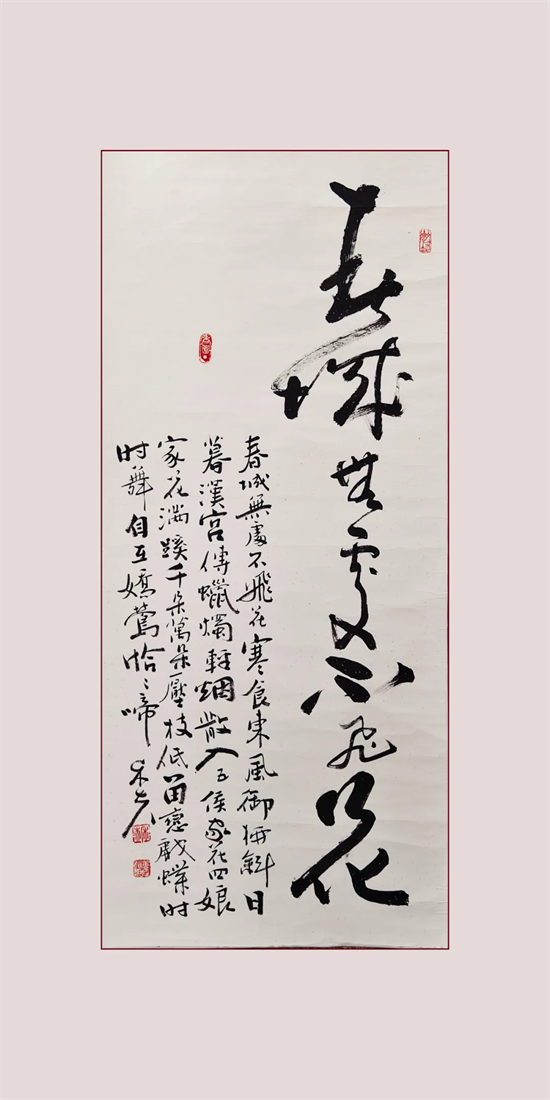 春城無處不飛花
春城無處不飛花寒食東風御柳斜日
暮漢宮傳蠟燭輕烟散入五侯家花四娘
家花滿蹊千朵萬朵壓枝低留戀戲蝶时
时舞自在嬌鶯恰々啼